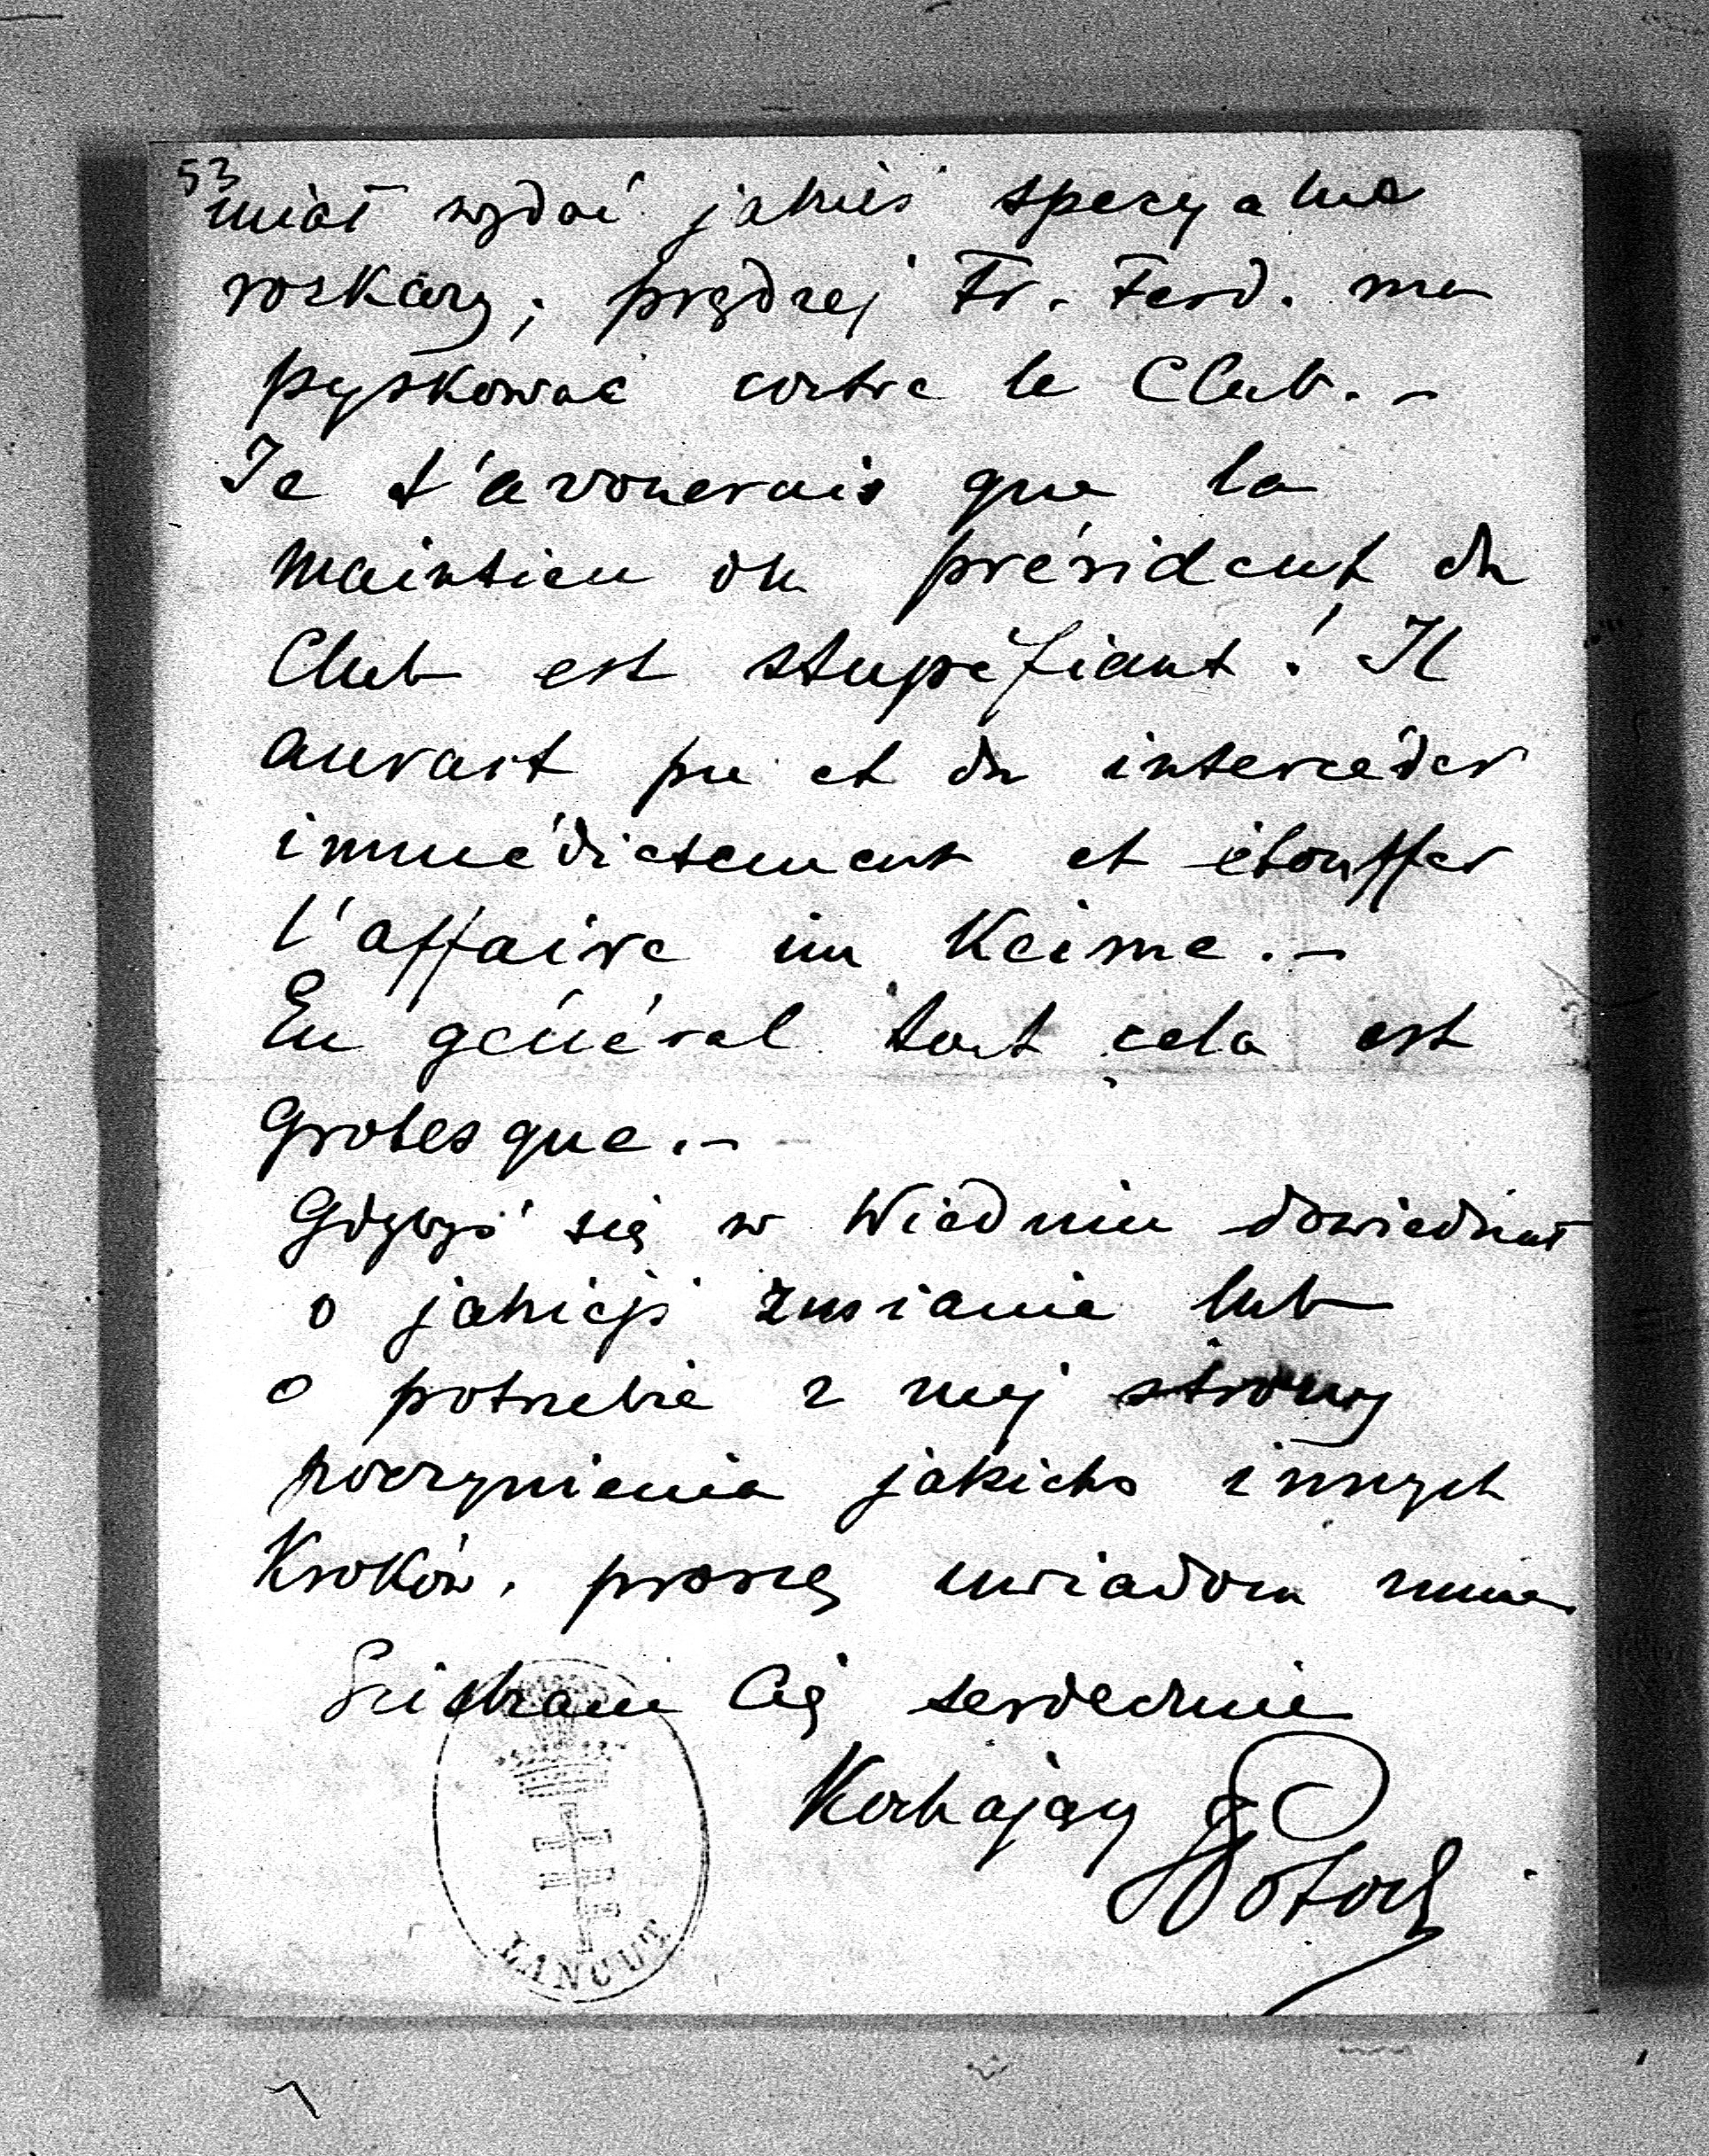 53
miał wydać jakieś specyalne
roskazy; prędzej Fr. Ferd. ma
pyskować contre le Club. -
Je t'avouerais que la
maintien du président du
Club est stupéfiant! Il
aurait pu et du intercéder
immédiatement et étouffer
l'affaire im Keime. -
En général tout cela est
grotesque. -
Gdybyś się w Wiedniu dowiedział
o jakiejś zmianie lub
o potrzebie z mej strony
poczynienia jakichś innych
Kroków, proszę uwiadom mnie
Ściskam Cię serdecznie
Kochający
RPotocki
ŁAŃCUT